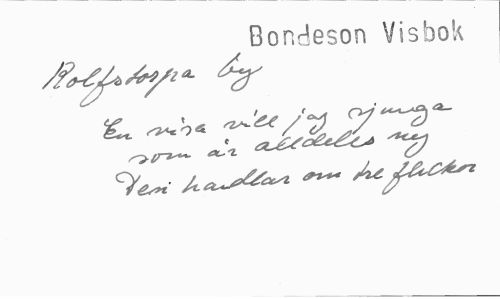 Bondeson Visbok
Rolfstorpa by
En visa vill jag sjunga
som är alldeles ny
Den handlar om tre flickor